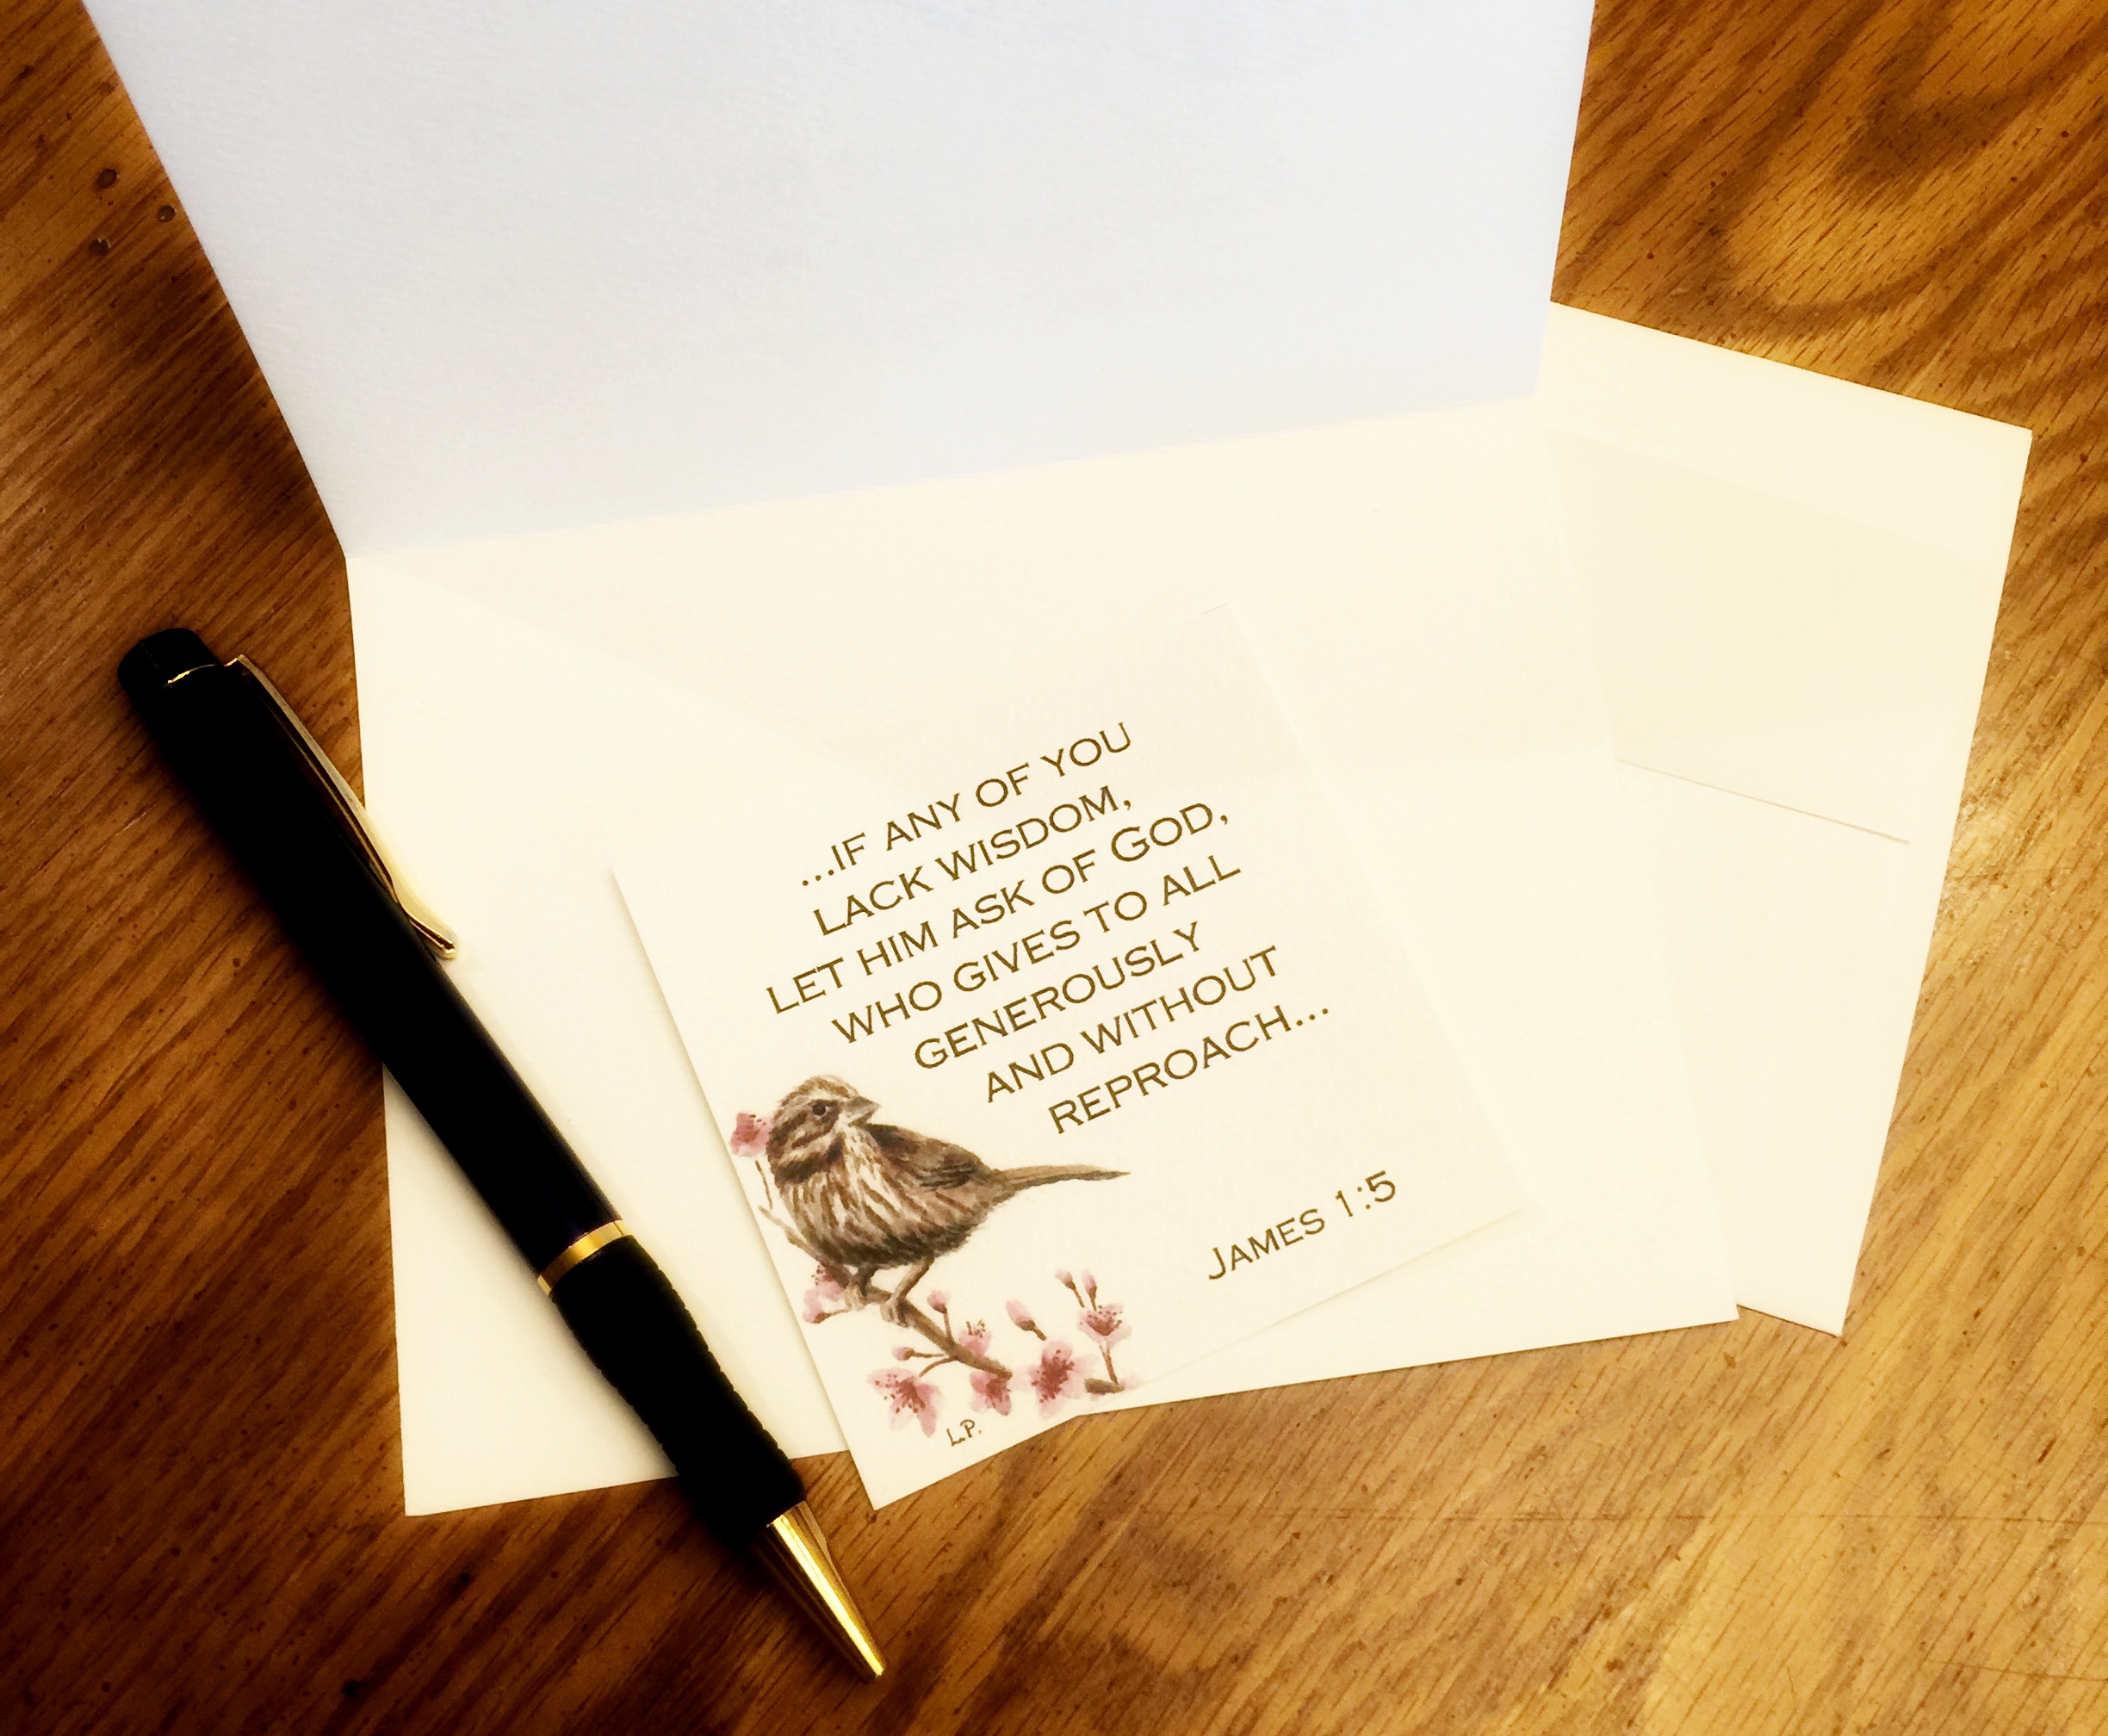 ...IF ANY OF YOU
LACK WISDOM,
LET HIM ASK OF GOD,
WHO GIVES TO ALL
GENEROUSLY
AND WITHOUT
REPROACH...
JAMES 1:5
L.P.